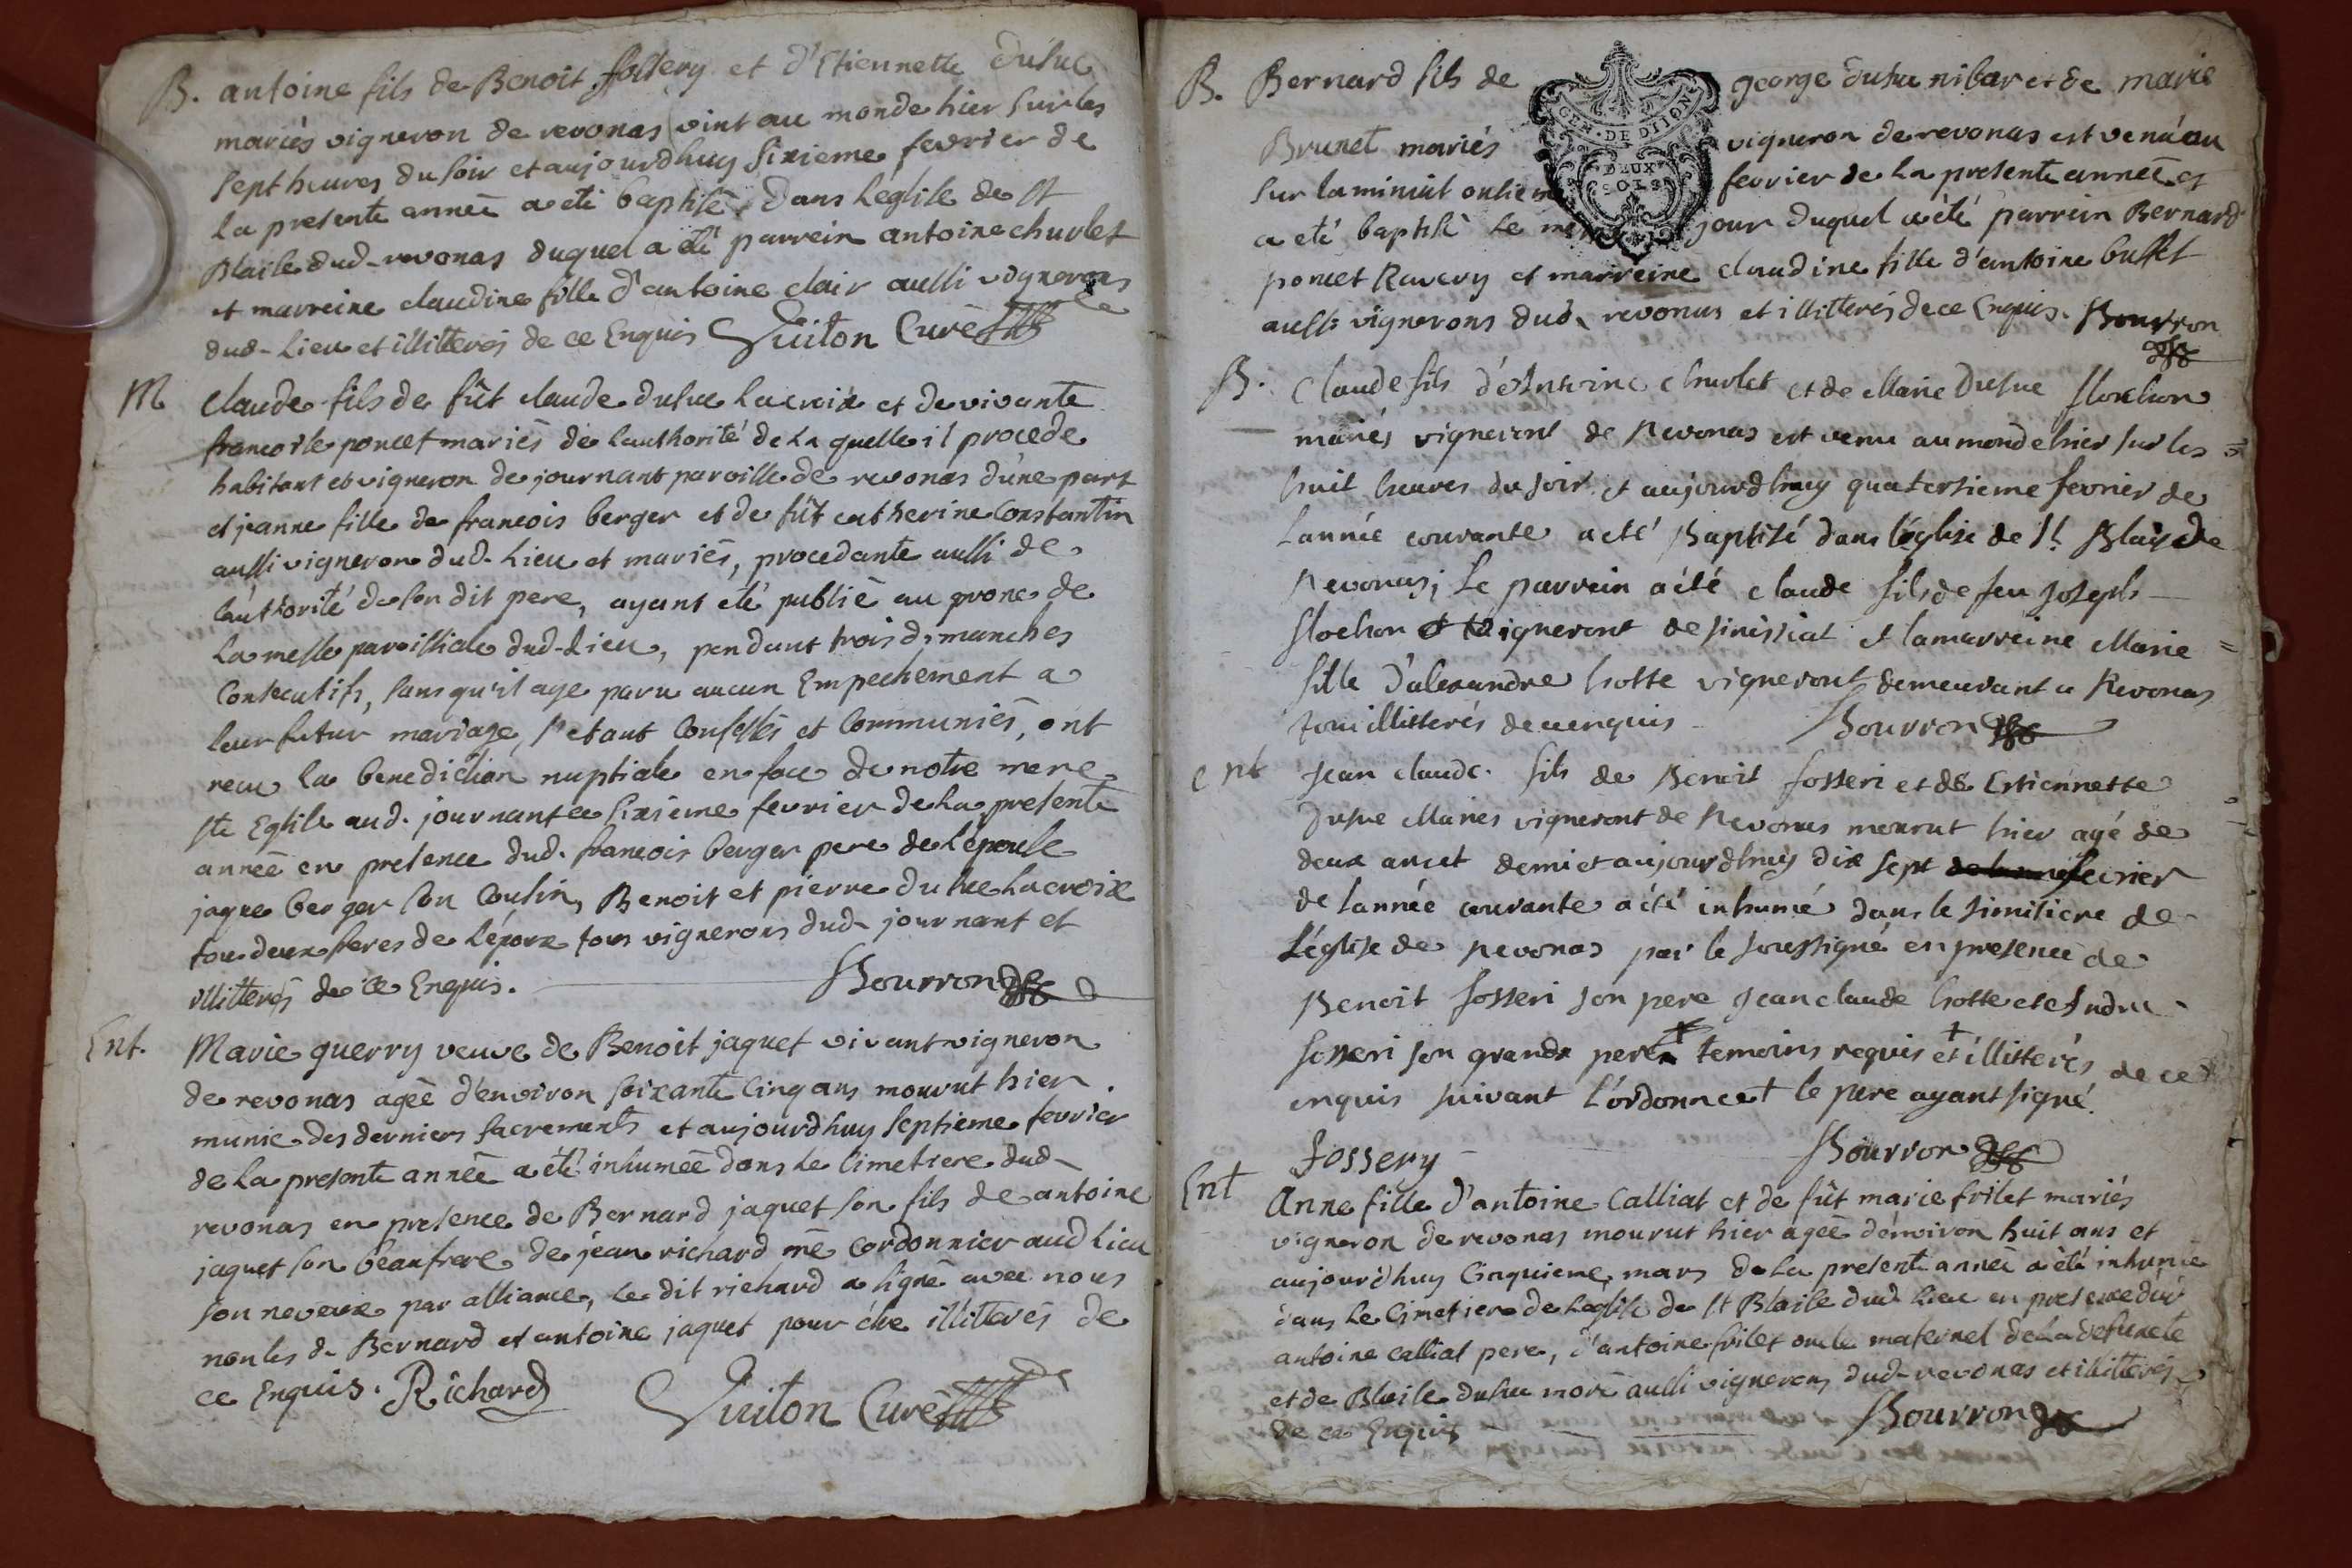 B. antoine fils de Benoit fossery et d'Etiennette dusuc
mariés vigneron de revonas vint au monde hier sur les
sept heures du soir et aujourdhuy sixieme fevrier de
la presente année a eté baptisé dans l'eglise de st
Blaise dud. revonas duquel a eté parrein antoine churlet
et marreine claudine fille d'antoine clair aussi vignerons
dud. Lieu et illitterés de ce Enquis Guiton Curé
M claude fils de fût claude dusuc Lacroix et de vivante
francoise poncet mariés de lauthorité de La quelle il procede
habitant et vigneron de journant paroisse de revonas d'une part
et jeanne fille de francois berger et de fût catherine Constantin
aussi vigneron dud. Lieu et mariés, procedante aussi de
l'authorité de son dit pere, ayant eté publié au prone de
La messe paroissiale dud. Lieu, pendant trois dimanches
Consecutifs, sans qu'il aye paru aucun Empechement a
leur futur mariage, s'etant Confessés et Communiés, ont
recu la benediction nuptiale en face de notre mere
ste Eglise aud. journant ce sixieme fevrier de La presente
année en presence dud. francois berger pere de L'épouse
jaque berger son Cousin, Benoit et pierre dusuc Lacroix
tou deux freres de L'époux tous vignerons dud. journant et
illitterés de ce Enquis. Bourron
Ent. Marie guerry veuve de Benoit jaquet vivant vigneron
de revonas agée d'environ soixante Cinq ans mourut hier
munie des derniers sacrements et aujourdhuy septieme fevrier
de La presente année a eté inhumée dans Le Cimetiere dud.
revonas en presence de Bernard jaquet son fils de antoine
jaquet son beaufrere de jean richard me Cordonnier aud Lieu
son neveux par alliance, Le dit richard a signé avec nous
non les d. Bernard et antoine jaquet pour étre illitterés de
ce Enquis. Richard Guiton Curé
GEN. DE DIJON
DEUX
SOLS
B. Bernard fils de george dusuc nibar et de marie
Brunet mariés vigneron de revonas est venu au
sur la minuit fevrier de La presente année et
a eté baptisé Le jour duquel a eté parrein Bernard
poncet Ravery et marreine claudine fille d'antoine buffet
aussi vignerons dud. revonas et illitterés de ce Enquis. Bourron
B. Claude fils d'Antoine Churlet et de Marie Dusuc flochon
mariés vigneront de Revonas est venu au monde hier sur les
huit heures du soir et aujourdhuy quatorsieme fevrier de
L'année courante a eté Baptisé dans l'église de St. Blais de
Revonas; Le parrein a été claude fils de feu Joseph
flochon vigneront de simissiat et la marreine Marie
fille d'alexandre hotte vigneront demeurant a Revonas
tous illitterés de ce enquis Bourron
Ent Jean claude fils de Benoit fosseri et de Estiennette
Dusuc Mariés vigneront de Revonas mourut hier agé de
deux ans et demi et aujourdhuy dix sept fevrier
de l'année courante a été inhumé dans le simitiere de
L'église de Revonas par le soussigné en presence de
Benoit fosseri son pere Jean claude hotte et Andre
fosseri son grande pere temoins requis et illitterés de ce
enquis suivant L'ordonnce + le pere ayant signé.
fossery Bourron
Ent Anne fille d'antoine Calliat et de fût marie frilet mariés
vigneron de revonas mourut hier agée d'environ huit ans et
aujourdhuy Cinquieme mars de La presente année a été inhumée
dans Le Cimetiere de L'eglise de St Blaise dud Lieu en presence du d
antoine Calliat pere, d'antoine frilet oncle maternel de La defuncte
et de Blaise dusuc moré aussi vignerons dud. revonas et illitterés
de ce Enquis Bourron